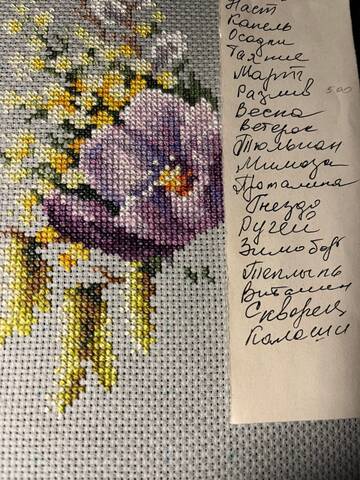 Наст
Капель
Осадки
Таяние
Март
Разлив 500
Весна
Ветерок
Тюльпан
Мимоза
Проталина
Гнездо
Ручей
Зимобор
Теплынь
Витамин
Скворец
Калоши